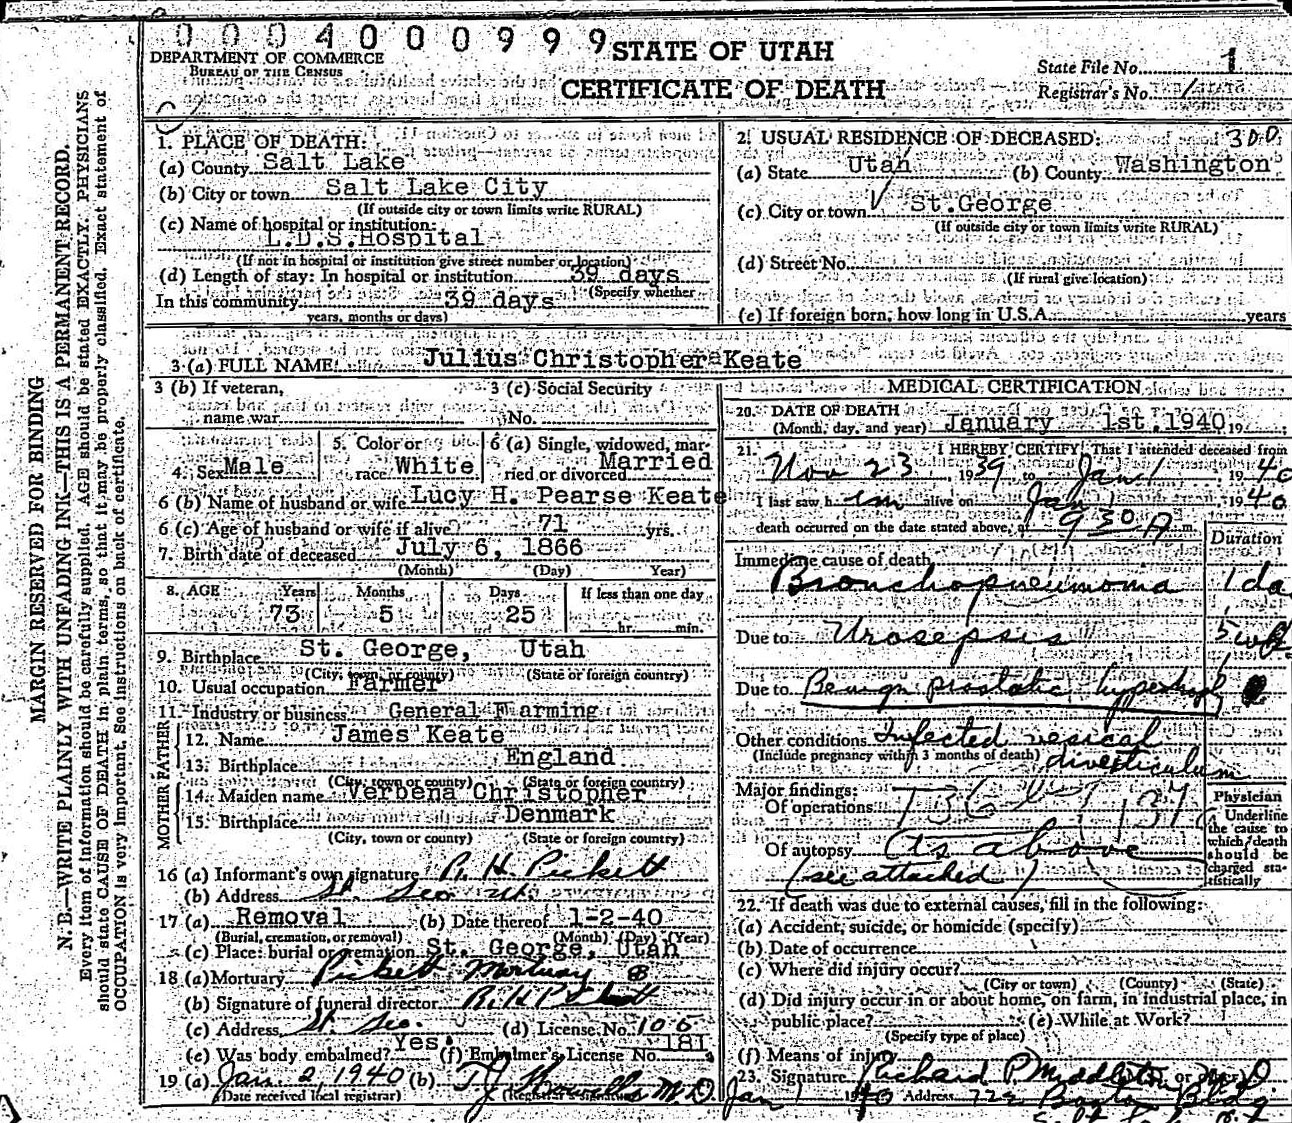 0 0 0 4 0 0 0 9 9 9
STATE OF UTAH
CERTIFICATE OF DEATH
DEPARTMENT OF COMMERCE
BUREAU OF THE CENSUS
State File No. 1
Registrar's No. 1
MARGIN RESERVED FOR BINDING
N. B.—WRITE PLAINLY WITH UNFADING INK—THIS IS A PERMANENT RECORD.
Every item of information should be carefully supplied. AGE should be stated EXACTLY. PHYSICIANS
should state CAUSE OF DEATH in plain terms, so that it may be properly classified. Exact statement of
OCCUPATION is very important. See instructions on back of certificate.
1. PLACE OF DEATH:
(a) County Salt Lake
(b) City or town Salt Lake City
(If outside city or town limits write RURAL)
(c) Name of hospital or institution:
L.D.S.Hospital
(If not in hospital or institution give street number or location)
(d) Length of stay: In hospital or institution 39 days
(Specify whether
In this community 39 days
years, months or days)
2. USUAL RESIDENCE OF DECEASED: 300
(a) State Utah (b) County Washington
(c) City or town St.George
(If outside city or town limits write RURAL)
(d) Street No.
(If rural give location)
(e) If foreign born, how long in U.S.A. years
3 (a) FULL NAME Julius Christopher Keate
3 (b) If veteran, name war
3 (c) Social Security No.
4. Sex Male
5. Color or race White
6 (a) Single, widowed, married or divorced Married
6 (b) Name of husband or wife Lucy H. Pearse Keate
6 (c) Age of husband or wife if alive 71 yrs.
7. Birth date of deceased July 6, 1866
(Month) (Day) Year)
8. AGE Years Months Days If less than one day
73 5 25 hr. min.
9. Birthplace St. George, Utah
(City, town, or county) (State or foreign country)
10. Usual occupation Farmer
11. Industry or business General Farming
FATHER
12. Name James Keate
13. Birthplace England
(City, town or county) (State or foreign country)
MOTHER
14. Maiden name Verbena Christopher
15. Birthplace Denmark
(City, town or county) (State or foreign country)
16 (a) Informant's own signature R. H. Pickett
(b) Address St. Geo Ut.
17 (a) Removal (b) Date thereof 1-2-40
(Burial, cremation, or removal) (Month) (Day) (Year)
(c) Place: burial or cremation St. George, Utah
18 (a) Mortuary Pickett Mortuary
(b) Signature of funeral director R. H. Pickett
(c) Address St. Geo. (d) License No. 106
(e) Was body embalmed? Yes. (f) Embalmer's License No. 181
19 (a) Jan. 2, 1940 (b) M D
(Date received local registrar) (Registrar's signature)
MEDICAL CERTIFICATION
20. DATE OF DEATH
(Month, day, and year) January 1st.1940 19
21. I HEREBY CERTIFY That I attended deceased from
Nov 23 1939 to Jan 1 1940
I last saw h im alive on Jan 1 1940
death occurred on the date stated above, at 9 30 A m.
Duration
Immediate cause of death
Bronchopneumonia 1 da
Due to Urosepsis 5 wk.
Due to Benign prostatic hypertrophy
Other conditions Infected vesical
(Include pregnancy within 3 months of death) diverticulum
Major findings:
Of operations
Of autopsy As above
(see attached)
Physician
Underline the cause to which death should be charged statistically
22. If death was due to external causes, fill in the following:
(a) Accident, suicide, or homicide (specify)
(b) Date of occurrence
(c) Where did injury occur?
(City or town) (County) (State)
(d) Did injury occur in or about home, on farm, in industrial place, in
public place? (e) While at Work?
(Specify type of place)
(f) Means of injury
23. Signature Richard P. Middleton
Jan 1 1940 Address Boston Bldg